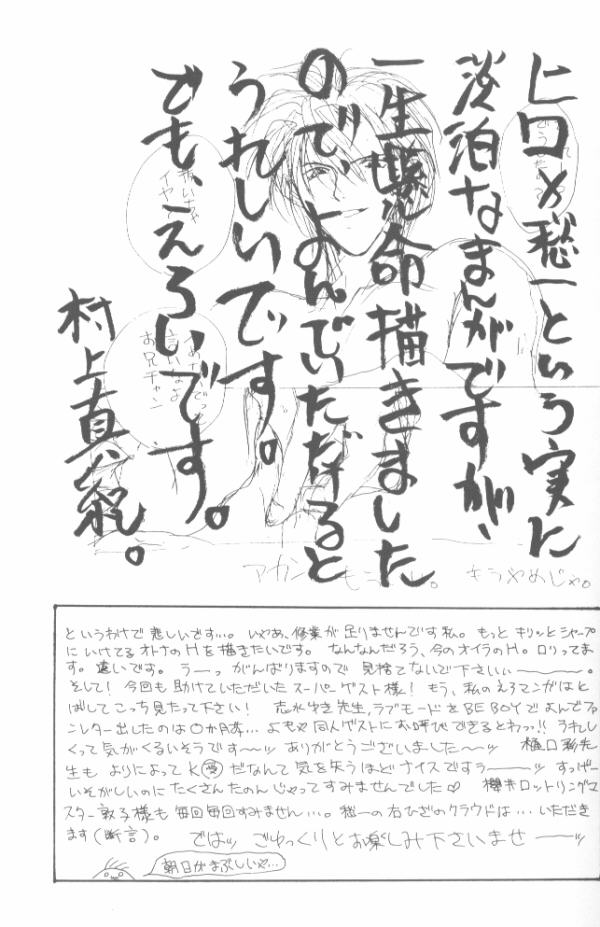 ヒロ×愁一という実に
淡泊なまんがですが、
一生懸命描きました
ので、よんでいただけると
うれしいです。
でも、えろいです。
村上真紀。
お兄チャン
というわけで悲しいです…。いやあ、修業が足りませんです私。もっとキリッとシャープ
にいけてるオトナのHを描きたいです。なんなんだろう、今のオイラのH。ロリってま
す。遠いです。うーっ がんばりますので 見捨てないで下さいぃ〜〜〜。
そして!今回も助けていただいたスーパーゲスト様!もう、私のえろマンガはと
ばしてこっち見たって下さい! 志水ゆき先生、ラブモードをBE BOYでよんでファ
ンレター出したのは〇か月前…よもや同人ゲストにお呼びできるとわっ!!うれし
くって気がくるいそうです〜〜ッ ありがとうございました〜ッ 樋口 先
生も よりによってK だなんて 気を失うほどナイスですラー〜ッ すっげー
いそがしいのに たくさんたのんじゃってすみませんでした♡ 櫻井ロットリングマ
スター敦子様も毎回毎回すみません…。愁一の右ひざのクラウドは…いただき
ます(断言)。 ではッ ごゆっくりとお楽しみ下さいませ〜〜ッ
朝日がまぶしいや…